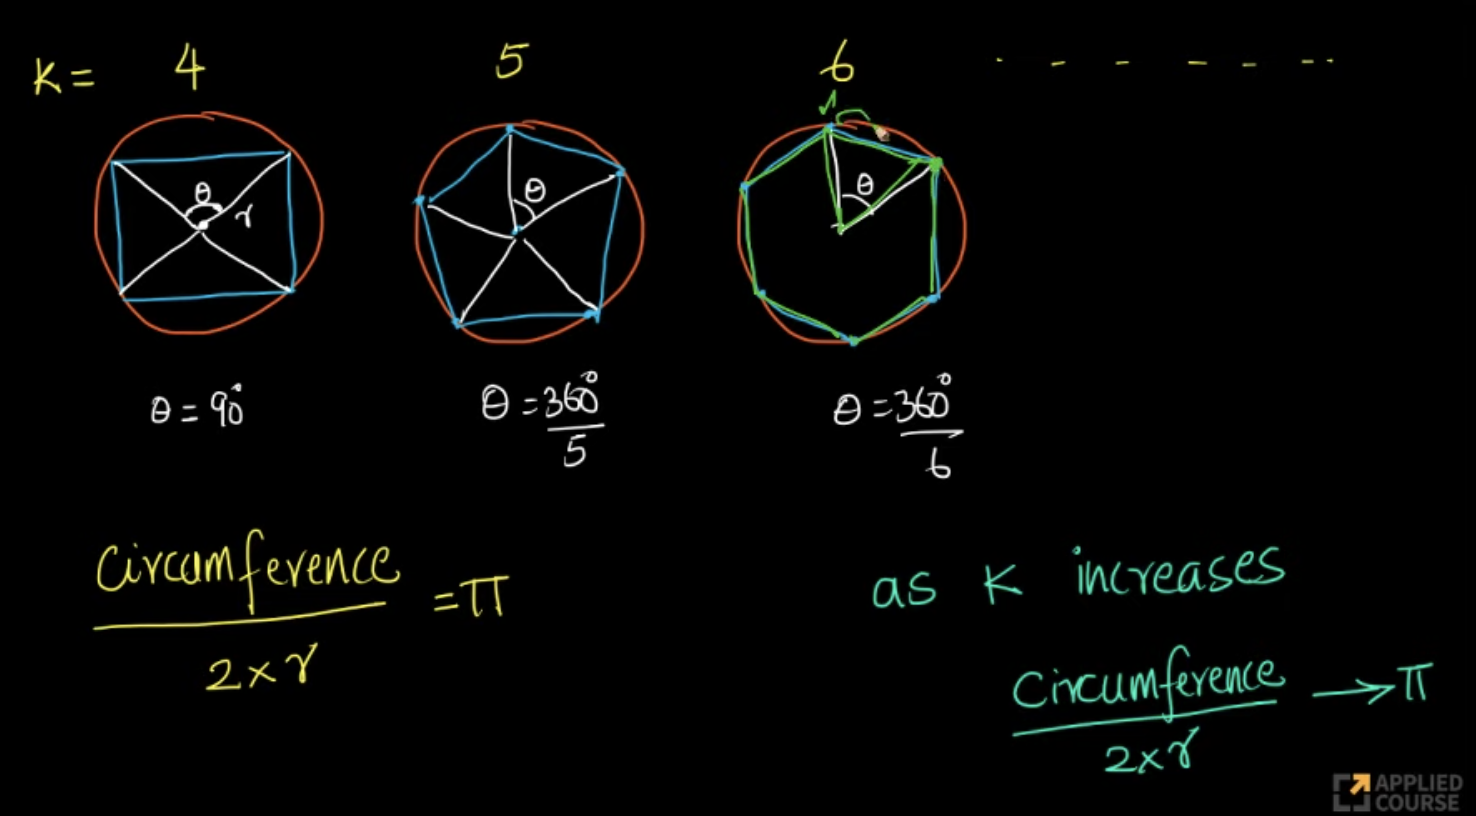 K = 4 5 6 . - - - - - .
θ
r
θ
θ
θ = 90°
θ = 360°
5
θ = 360°
6
Circumference
2 × r
= π
as K increases
Circumference
2 × r
→ π
APPLIED
COURSE